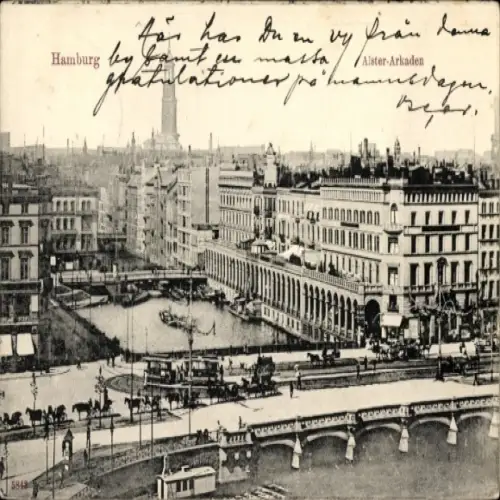 Här har Du en vy från denna
Hamburg
by samt en massa
Alster-Arkaden
gratulationer på namnsdagen.
5843